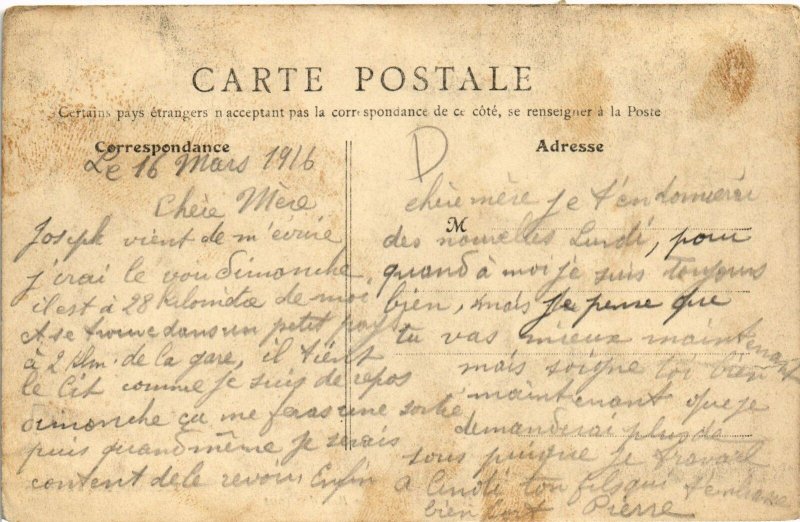 CARTE POSTALE
Certains pays étrangers n'acceptant pas la correspondance de ce côté, se renseigner à la Poste
Correspondance
Le 16 Mars 1916
Chère Mère
Joseph vient de m'écrire
j'irai le voir dimanche
il est à 28 kilomètre de moi
et se trouve dans un petit pays
à 2 Klm. de la gare, il tient
le lit comme je suis de repos
dimanche ça me feras une sortie
puis quand même je serais
content de le revoir Enfin
D
Adresse
M
chère mère je t'en donnerai
des nouvelles Lundi, pour
quand à moi je suis toujours
bien, mais je pense que
tu vas mieux maintenant
mais soigne toi bien
maintenant que je
demanderai plus de
sous puisque je travail
à ton fils qui t'embrasse
bien fort Pierre